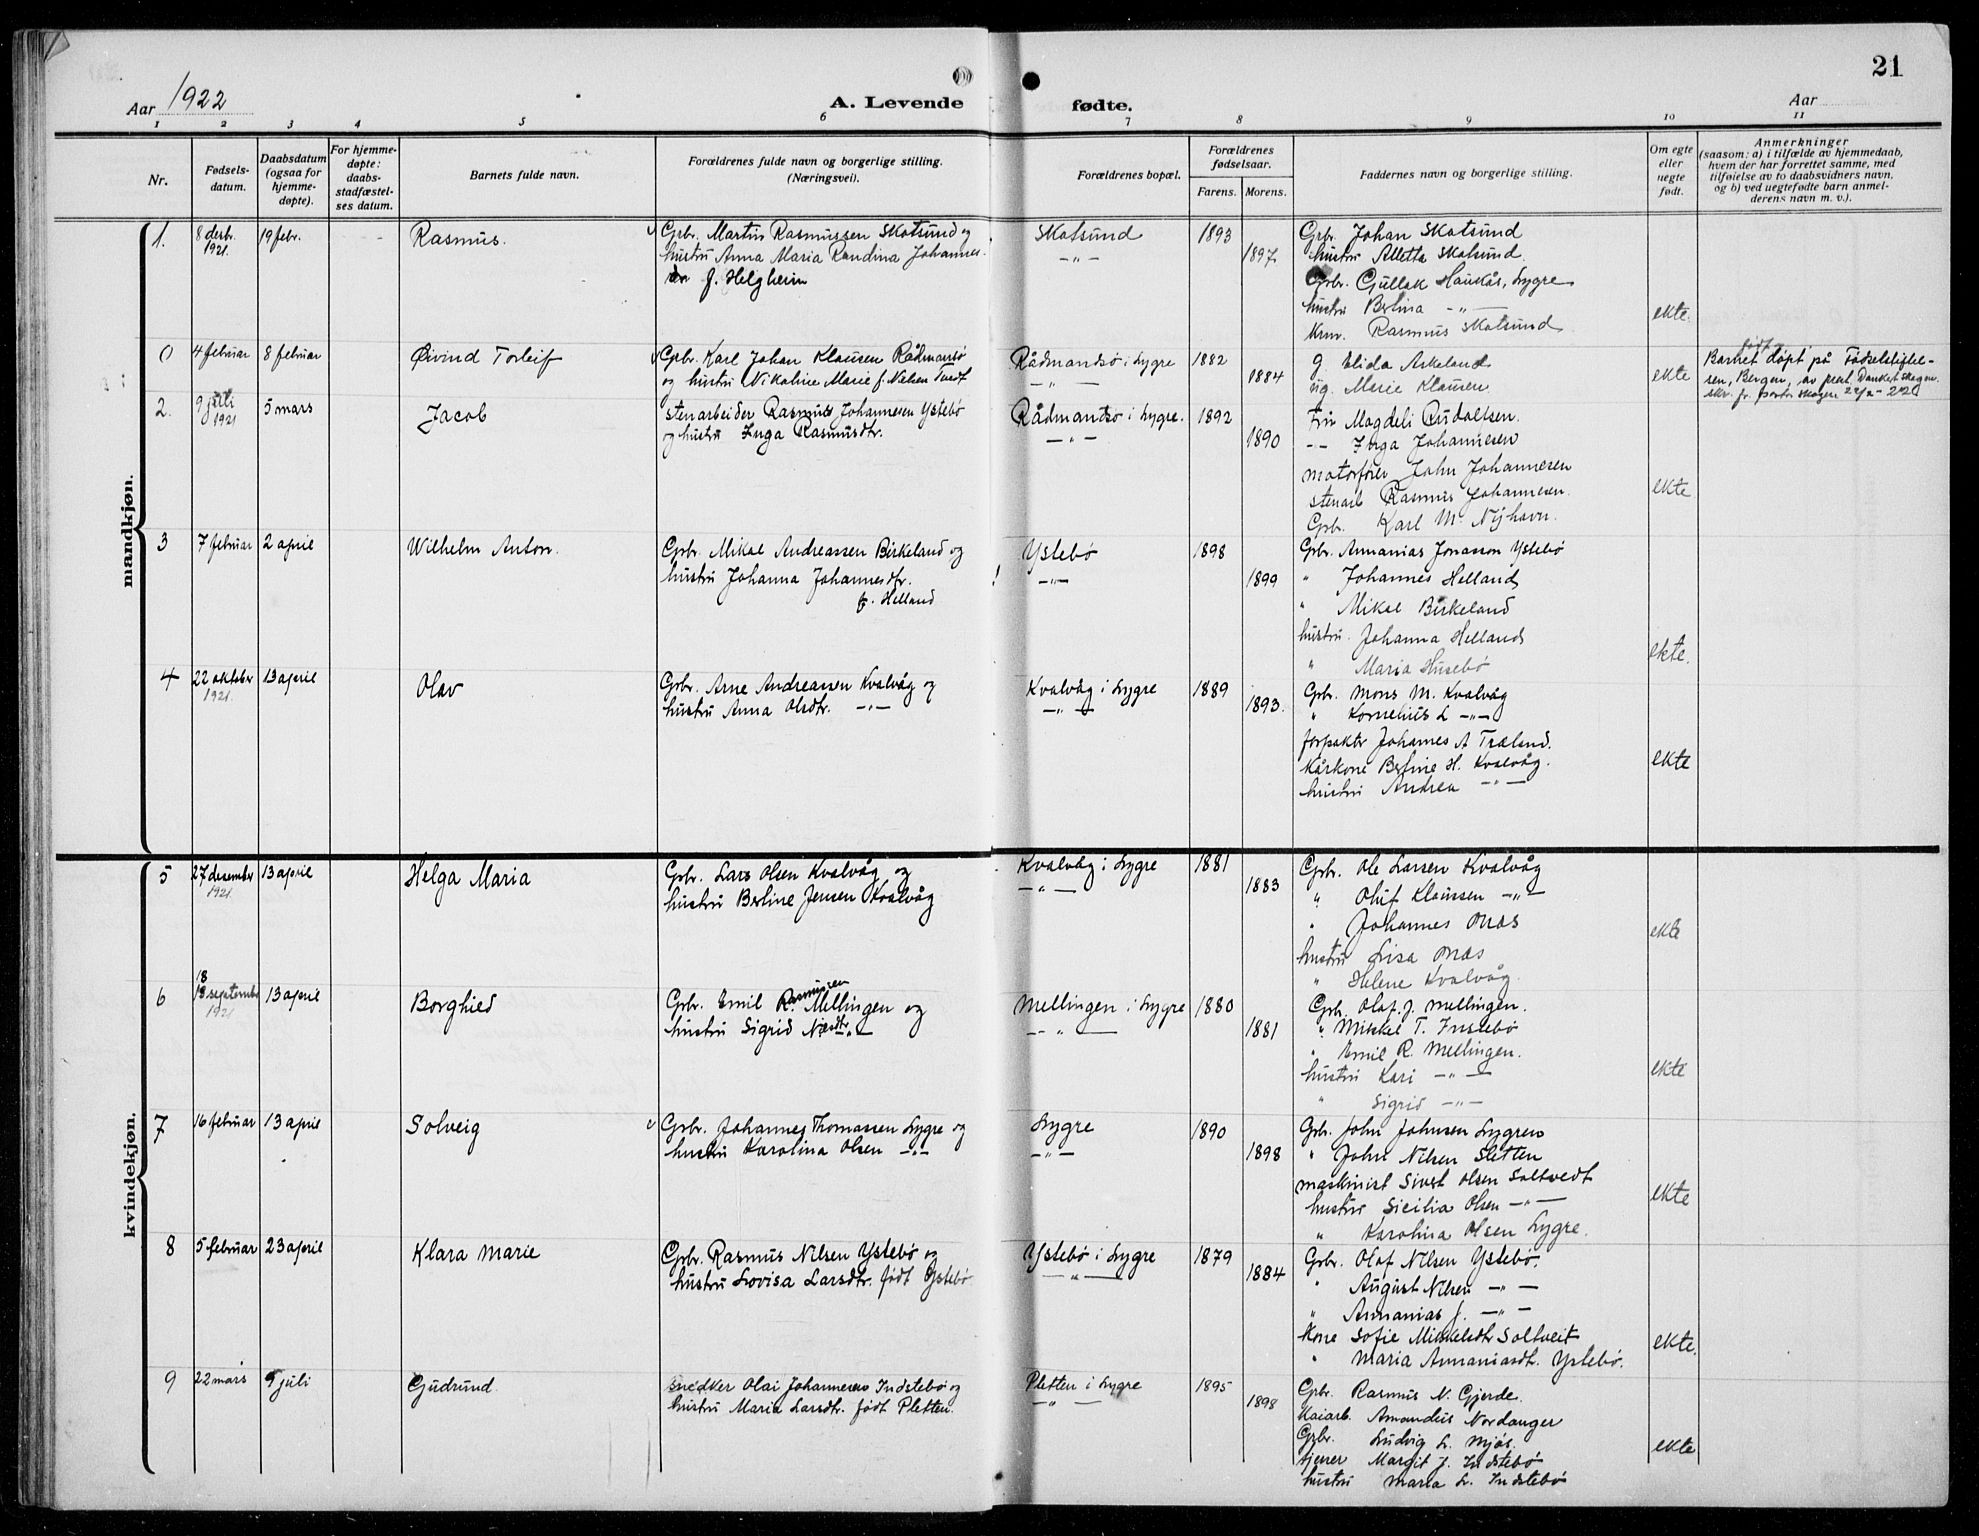 21
Aar 1922
A. Levende fødte.
Aar
1 2 3 4 5 6 7 8 9 10 11
Nr.
Fødsels-
datum.
Daabsdatum
(ogsaa for
hjemme-
døpte).
For hjemme-
døpte:
daabs-
stadfæstel-
ses datum.
Barnets fulde navn.
Forældrenes fulde navn og borgerlige stilling.
(Næringsvei).
Forældrenes bopæl.
Forældrenes
fødselsaar.
Farens. Morens.
Faddernes navn og borgerlige stilling.
Om egte
eller
uegte
født.
Anmerkninger
(saasom: a) i tilfælde av hjemmedaab,
hvem der har forrettet samme, med
tilføielse av to daabsvidners navn,
og b) ved uegtefødte barn anmel-
derens navn m. v.).
mandkjøn.
1. 8 desb. 1921. 19 febr. Rasmus.
Grbr. Martin Rasmussen Skotsund og
hustru Anna Maria Randina Johannes-
f. Helgheim
Skotsund
—"—
1893
1897
Grbr. Johan Skotsund
hustru Alletta Skotsund.
Grbr. Gullak Haukås, Lygre
hustru Berlina —"—
Rasmus Skotsund
ekte.
0 4 februar 8 februar Øivind Torleif
Grbr. Karl Johan Klausen Rådmansø
og hustru Nikoline Marie f. Nielsen
Rådmandsø i Lygre
—"—
1882
1884
g. Elida Askeland
ug. Marie Klausen
ekte
født
Barnet døpt på Fødselsstiftel-
sen, Bergen, av
2. 9 juli 1921 5 mars Jacob
stenarbeider Rasmus Johannesen Ystebø
og hustru Inga Rasmusdtr.
Rådmandsø i Lygre.
—"—
1892
1890
Fru Magdeli Rudolfsen.
-- Inga Johannesen
motorfører John Johannesen
stenarb Rasmus Johannesen.
Grbr. Karl M. Nyhavn.
ekte
3 7 februar 2 april Wilhelm Anton.
Grbr. Mikal Andreassen Birkeland og
hustru Johanna Johannesdtr.
f. Helland
Ystebø
—"—
1898
1899
Grbr. Annanias Jonasson Ystebø
" Johannes Helland
" Mikal Birkeland
hustru. Johanna Helland
" Maria Husebø
ekte.
4 22 oktober 1921. 13 april Olav
Grbr. Arne Andreassen Kvalvåg og
hustru Anna Olsdtr. —"—
Kvalvåg i Lygre
—"—
1889
1893.
Grbr. Mons M. Kvalvåg
" Kornelius L —"—
forpakter Johannes A Træland.
Kårkone Berline H. Kvalvåg.
hustru Andrea —"—
ekte
kvindekjøn.
5 27 desember 1921. 13 april Helga Maria
Grbr. Lars Olsen Kvalvåg og
hustru Berline Jensen Kvalvåg
Kvalvåg i Lygre
—"—
1881
1883
Grbr. Ole Larsen Kvalvåg
" Oluf Klaussen —"—
" Johannes
hustru Lisa
" Helene Kvalvåg.
ekte
6 18 september 1921 13 april Borghied
Grbr. Emil R. Rasmussen Mellingen og
hustru Sigrid —"—
Mellingen i Lygre
—"—
1880
1881
Grbr. Olaf. J. Mellingen.
" Mikkel T. Instebø
" Emil R. Mellingen.
hustru Kari —"—
" Sigrid —"—
ekte
7 16 februar 13 april Solveig
Grbr. Johannes Thomassen Lygre og
hustru Karolina Olsen —"—
Lygre
—"—
1890
1898
Grbr. John Johnsen Lygren
" John Nilsen Sletten
maskinist Sivert Olsen Soltvedt
hustru Sicilia Olsen —"—
" Karolina Olsen Lygre.
ekte
8 5 februar 23 april Klara Marie
Grbr. Rasmus Nilsen Ystebø og
hustru Lovisa Larsdtr. født Ystebø
Ystebø i Lygre
—"—
1879
1884
Grbr. Olaf Nilsen Ystebø.
" August Nilsen —"—
" Annanias J. —"—
Kone Sofie Mikkelsdtr Soltveit
" Maria Annaniasdt. Ystebø.
ekte.
9 22 mars 9 juli Gudrund.
snedker Olai Johannesen Indstebø og
hustru Maria Larsdtr. født Pletten.
Pletten i Lygre
—"—
1895
1898
Grbr. Rasmus N. Gjerde.
Kaiarb. Amandus Nordanger
Grbr. Ludvig L. Mjøs.
tjener Margit J. Indstebø
hustru Maria L. Indstebø
ekte